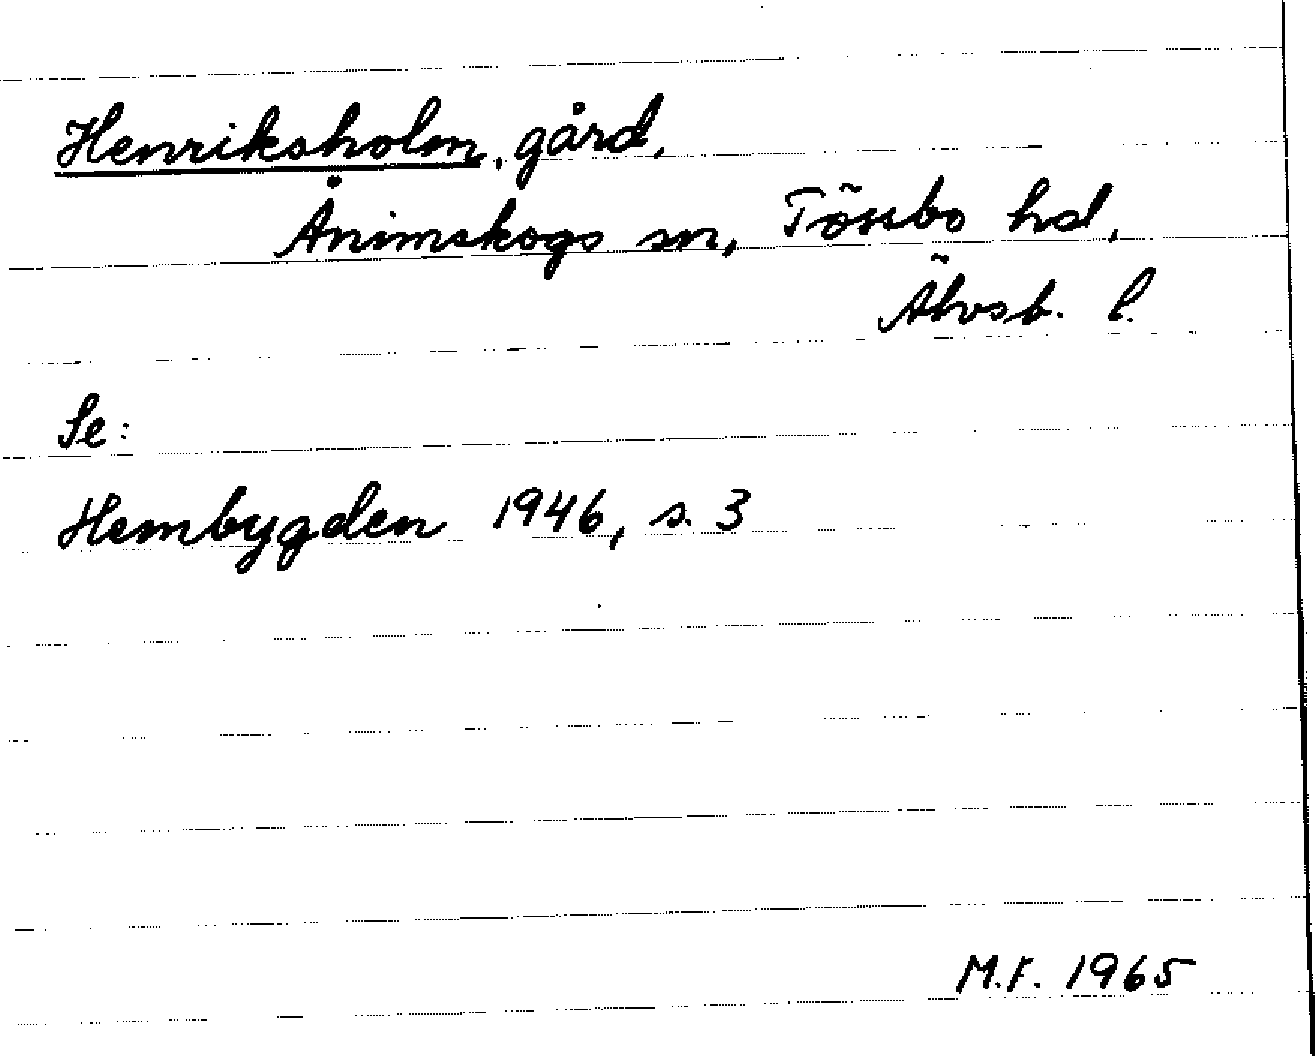 Henriksholm, gård,
Ånimskogs sn, Tössbo hd,
Älvsb. l.
Se:
Hembygden 1946, s. 3
M.F. 1965